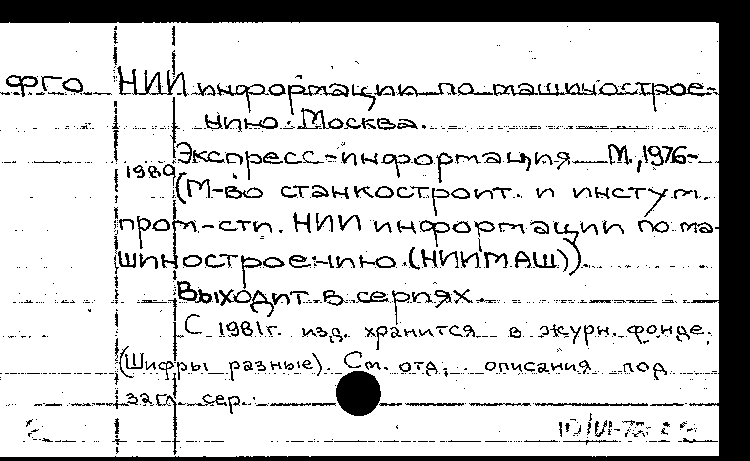 ФГО НИИ информации по машинострое-
нию. Москва.
Экспресс-информация. М., 1976-
1980
(М-во станкостроит. и инстум.
пром-сти. НИИ информации по ма-
шиностроению (НИИМАШ)).
Выходит в сериях.
С 1981г. изд. хранится в журн. фонде.
(Шифры разные). См. отд. описания под
загл. сер.